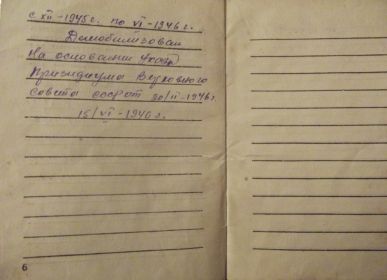 с XII - 1945 г. по VI - 1946 г.
Демобилизован
На основании Указа
Президиума Верховного
Совета СССР от 20/II-1946г
15/VI - 1946 г.
6